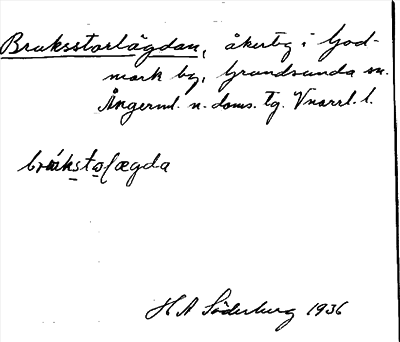 Bruksstorlägdan, åkerby i God-
mark by, Grundsunda sn.
Ångerml. n. doms. Tg. Vnorrl. l.
brukstoḷægda
H A Söderberg 1936